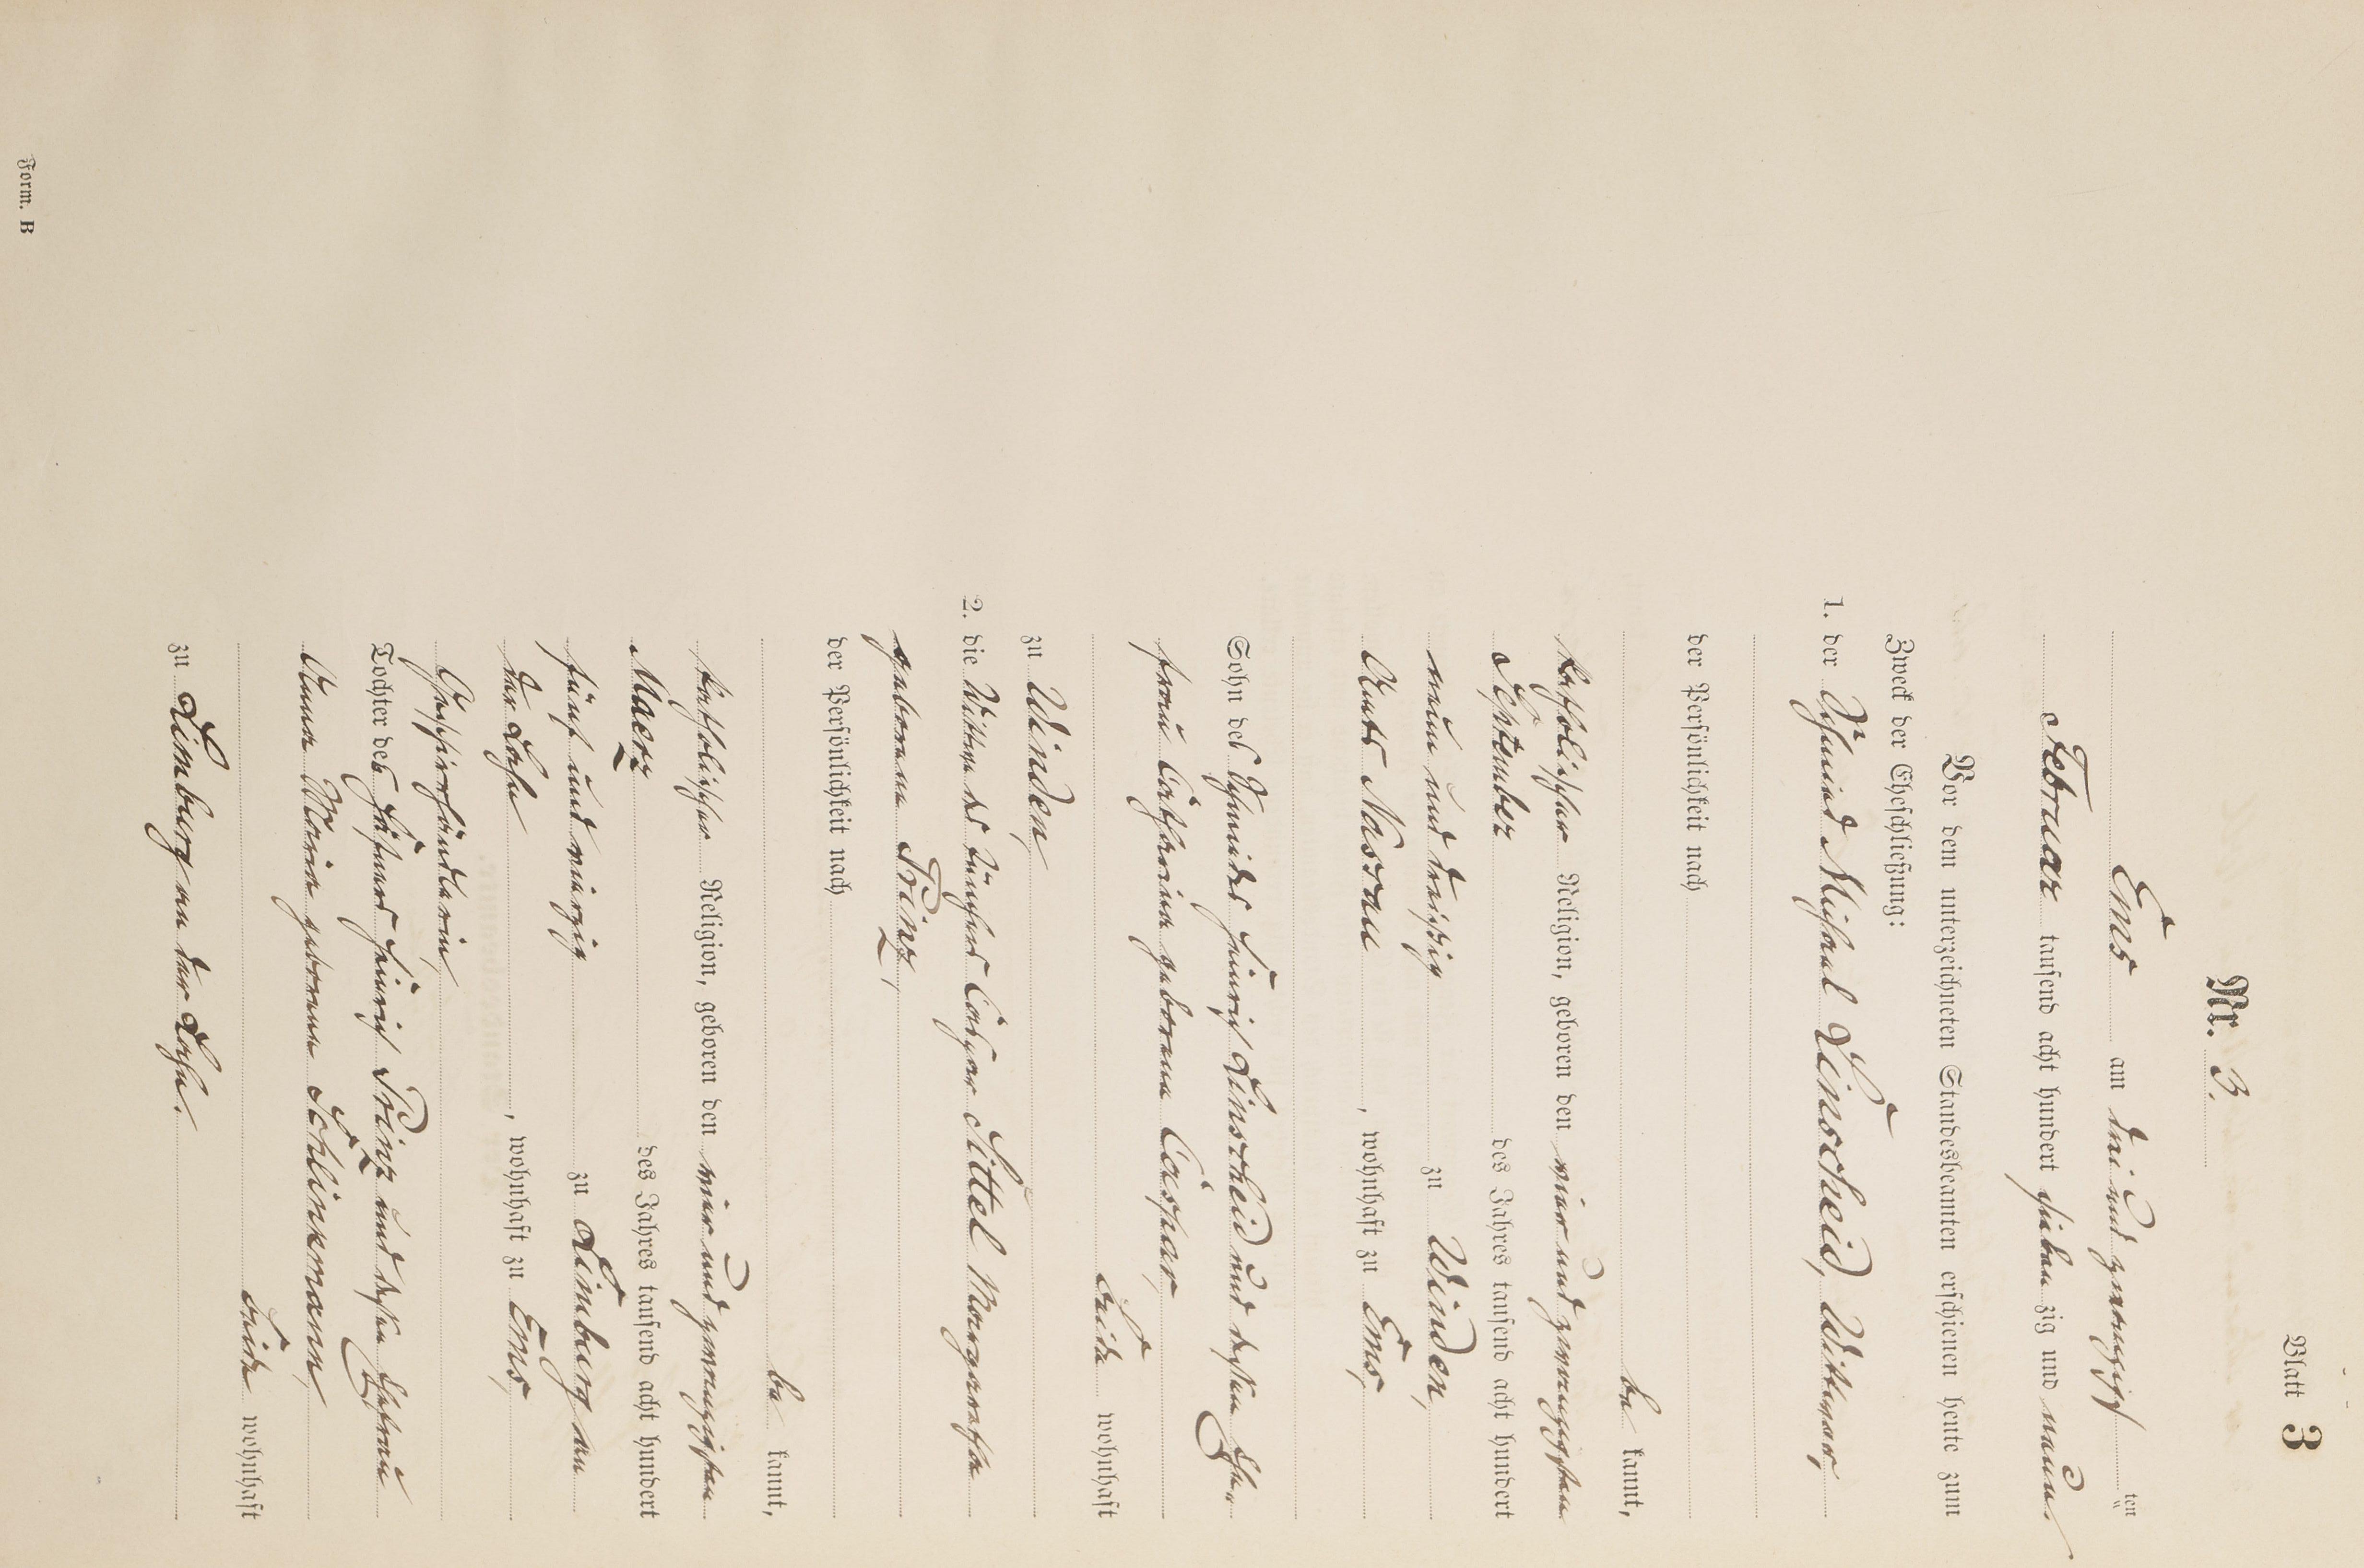 Blatt 3
Nr. 3.
Ems am drei und zwanzigst ten
Februar tausend acht hundert sieben zig und neun.
Vor dem unterzeichneten Standesbeamten erschienen heute zum
Zweck der Eheschließung:
1. der Schmied Michael Linscheid, Wittwer,
der Persönlichkeit nach
be kannt,
katholischer Religion, geboren den vier und zwanzigsten
September des Jahres tausend acht hundert
neun und dreißig zu Winden,
Amts Nassau, wohnhaft zu Ems,
Sohn des Schmiedes Heinrich Linscheid und dessen Ehe„
frau Catharina geborenen Caspar,
beide wohnhaft
zu Winden,
2. die Wittwe des Caspar Sittel Margaretha
geborene Prinz,
der Persönlichkeit nach
be kannt,
katholischer Religion, geboren den vier und zwanzigsten
Maerz des Jahres tausend acht hundert
fünf und vierzig zu Limburg an
der Lahn, wohnhaft zu Ems,
Geschirrhändlerin,
Tochter des Heinrich Prinz und dessen Ehefrau
Anna Maria geborenen Schlinkmann,
beide wohnhaft
zu Limburg an der Lahn.
Form. B